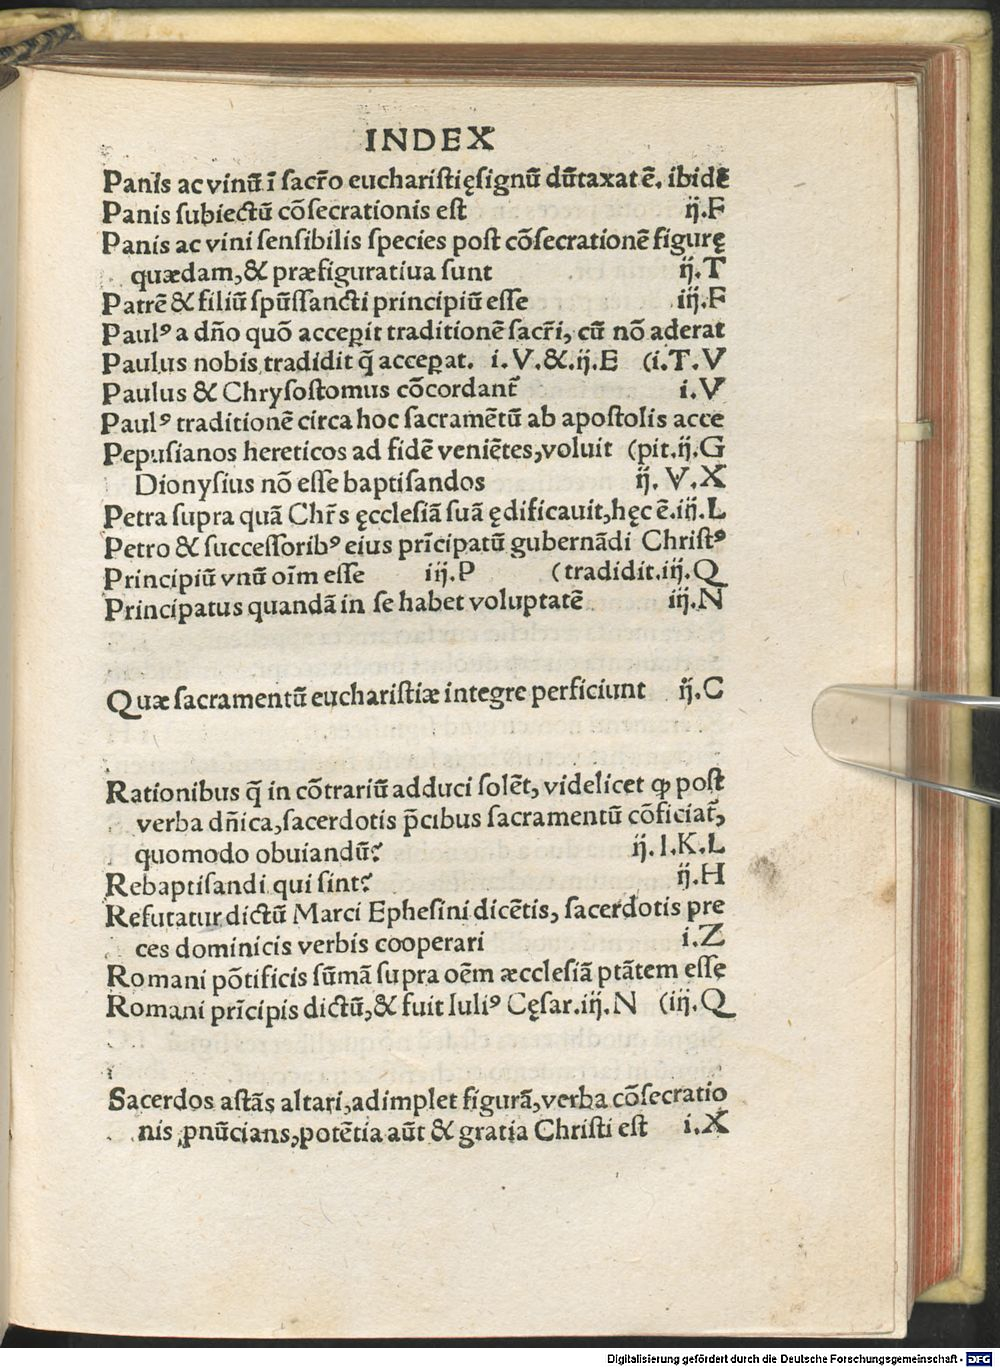 INDEX
Panis ac vinũ ĩ sacr̃o euchariſtię ſignũ dũtaxat ẽ. ibidẽ
Panis ſubiectũ cõſecrationis eſt ij.F
Panis ac vini ſenſibilis ſpecies poſt cõſecrationẽ figurę
quædam,& præfiguratiua ſunt ij.T
Patrẽ & filiũ ſpũſſancti principiũ eſſe iij.F
Paulꝰ a dño quõ accepit traditionẽ ſacr̃i, cũ nõ aderat
Paulus nobis tradidit q̃ acceꝑat. i.V.&.ij.E (i.T.V
Paulus & Chryſoſtomus cõcordant̃ i.V
Paulꝰ traditionẽ circa hoc ſacramẽtũ ab apoſtolis acce
Pepuſianos hereticos ad fidẽ veniẽtes,voluit (pit.ij.G
Dionyſius nõ eſſe baptiſandos ij. V.X
Petra ſupra quã Chr̃s ęccleſiã ſuã ędificauit,hęc ẽ.iij.L
Petro & ſucceſſoribꝰ eius prĩcipatũ gubernãdi Chriſtꝰ
Principiũ vnũ oĩm eſſe iij.P (tradidit.iij.Q
Principatus quandã in ſe habet voluptatẽ iij.N
Quæ ſacramentũ euchariſtiæ integre perficiunt ij.C
Rationibus q̃ in cõtrariũ adduci ſolẽt, videlicet ꝙ poſt
verba dñica,ſacerdotis p̃cibus ſacramentũ cõficiat̃,
quomodo obuiandũ? ij.I.K.L
Rebaptiſandi qui ſint? ij.H
Refutatur dictũ Marci Epheſini dicẽtis, ſacerdotis pre
ces dominicis verbis cooperari i.Z
Romani põtificis ſũmã ſupra oẽm æccleſiã ptãtem eſſe
Romani prĩcipis dictũ,& fuit Iuliꝰ Cęſar.iij.N (iij.Q
Sacerdos aſtãs altari,adimplet figurã,verba cõſecratio
nis ꝓnũcians,potẽtia aũt & gratia Chriſti eſt i.X
Digitalisierung gefördert durch die Deutsche Forschungsgemeinschaft - DFG